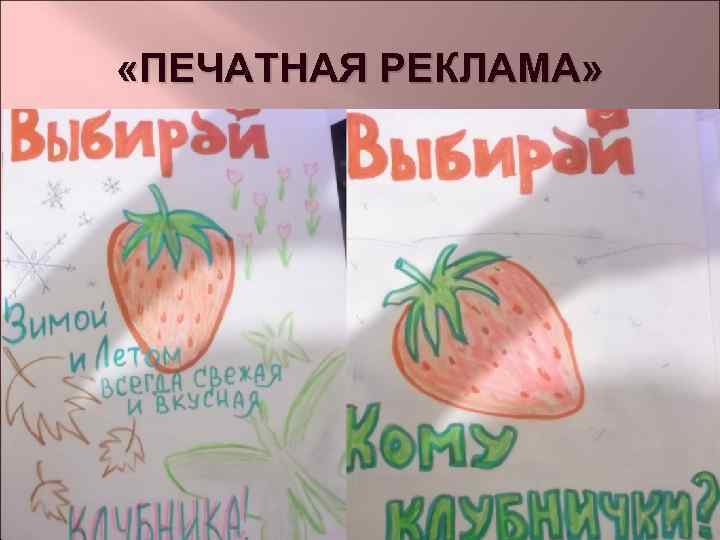 «ПЕЧАТНАЯ РЕКЛАМА»
Выбирай
Зимой
и Летом
всегда свежая
и вкусная
клубника!
Выбирай
Кому
клубнички?